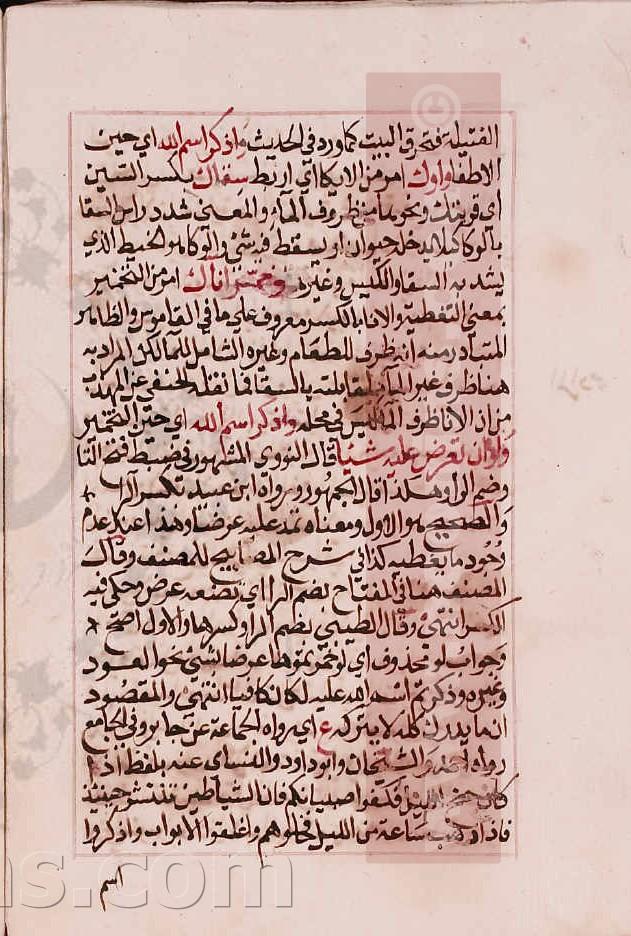 الفتيلة فتحرق البيت كما ورد في الحديث واذكر اسم الله اي حين
الاطفا واوك امر من الايكا اي اربط سقاك بكسر السين
اي قربتك ونحوها من ظروف الماء والمعنى شدد راس السقا
بالوكا كيلا يدخله حيوان او يسقط فيه شي والوكا هو الخيط الذي
يشد به السقا والكيس وغيره وخمر اناك امر من التخمير
بمعنى التغطية والانا بالكسر معروف على ما في القاموس والظاهر
المتبادر منه انه ظرف للطعام وغيره الشامل للماء لكن المراد به
هنا ظرف غير الماء لمقابلته بالسقا فما نقله الحنفي عن المهذب
من ان الانا ظرف الماء ليس في محله واذكر اسم الله اي حين التخمير
ولو ان تعرض عليه شيئا قال النووي المشهور في ضبطه فتح التا
وضم الرا وهكذا قال الجمهور ورواه ابن عبيد بكسر الرا
والصحيح هو الاول ومعناه تمد عليه عرضا وهذا عند عدم
وجود ما يغطيه كذا في شرح المصابيح للمصنف وقال
المصنف هنا في المفتاح بضم الرا اي تضعه عرض وحكي فيه
الكسر انتهى وقال الطيبي بضم الرا وكسرها والاول اصح
وجواب لو محذوف اي لو خمرتموها عرضا بشي نحو العود
وغيره وذكرتم اسم الله عليه لكان كافيا انتهى والمقصود
ان ما يدرك كله لا يترك كله ع اي رواه الجماعة عن جابر وفي الجامع
رواه احمد والشيخان وابو داود والنساي عنه بلفظ اذا
كان جنح الليل فكفوا صبيانكم فان الشياطين تنتشر حينئذ
فاذا ذهب ساعة من الليل فخلوهم واغلقوا الابواب واذكروا
اسم
ns.com